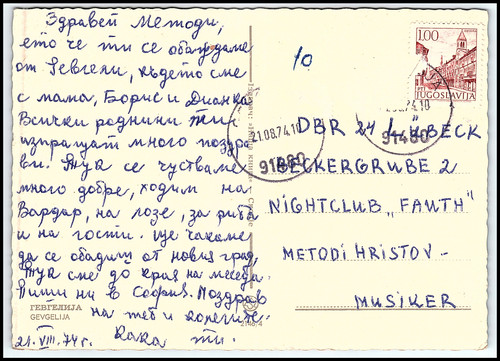 Здравей Методи,
ето че ти се обаждаме
от Гевгели, където сме
с мама, Борис и Дианка.
Всички роднини ти
изпращат много поздра
ви. Тук се чустваме
много добре, ходим на
Вардар, на лозе, за риба
и на гости. Ще чакаме
да се обадиш от новия град,
Тук сме до края на месеца.
Пиши ни в София. Поздрав
на теб и колегите.
21.VIII.74 г. Кака ти.
ГЕВГЕЛИЈА
GEVGELIJA
10
1.00
JUGOSLAVIJA
21.08.74.10
91480
91480
DBR 24 LÜBECK
BECKERGRUBE 2
NIGHTCLUB „FAUTH"
METODI HRISTOV -
MUSIKER